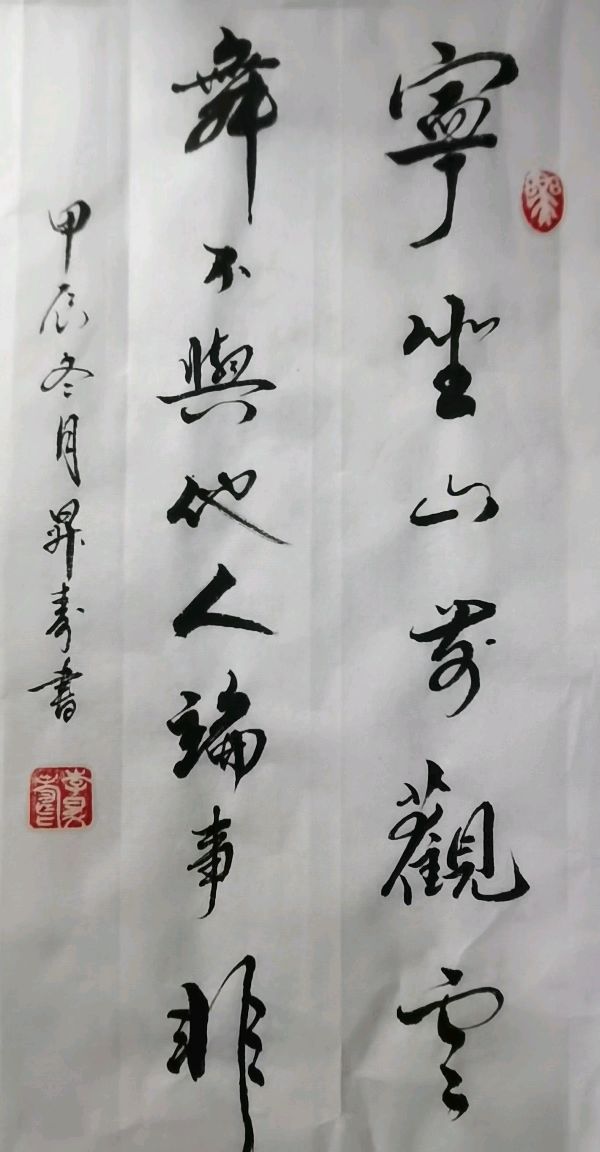 寧坐山前觀雲
舞不與他人論事非
甲辰冬月昇壽書